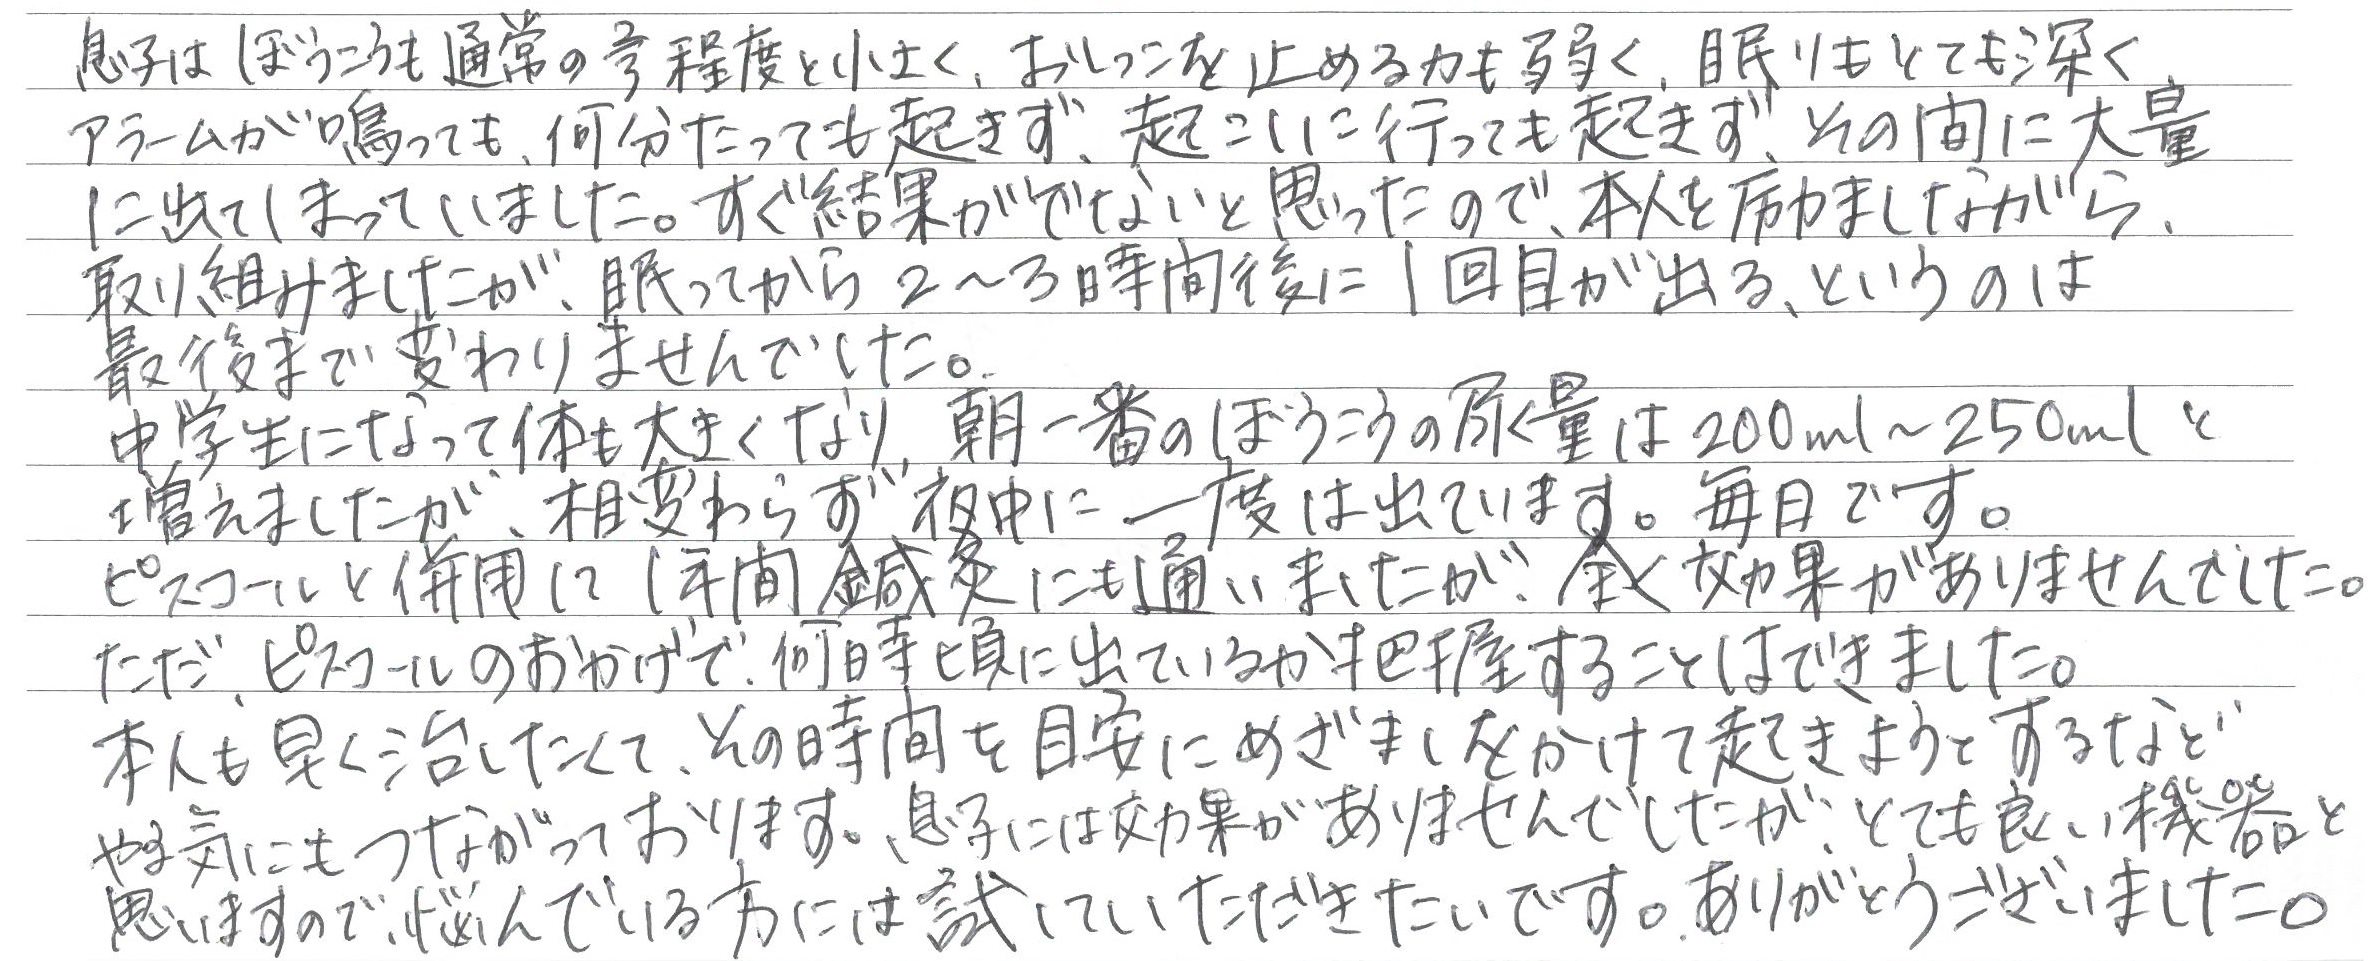 息子はぼうこうも通常の 程度と小さく、おしっこを止める力も弱く、眠りもとても深く
アラームが鳴っても、何分たっても起きず、起こしに行っても起きず、その間に大量
に出てしまっていました。すぐ結果がでないと思ったので、本人を励ましながら、
取り組みましたが、眠ってから2～3時間後に1回目が出る、というのは
最後まで変わりませんでした。
中学生になって体も大きくなり、朝一番のぼうこうの尿量は200ml～250mlと
増えましたが、相変わらず夜中に一度は出ています。毎日です。
ピスコールと併用して1年間鍼灸にも通いましたが、全く効果がありませんでした。
ただ、ピスコールのおかげで、何時頃に出ているか把握することはできました。
本人も早く治したくて、その時間を目安にめざましをかけて起きようとするなど
やる気にもつながっております。息子には効果がありませんでしたが、とても良い機器と
思いますので、悩んでいる方には試していただきたいです。ありがとうございました。